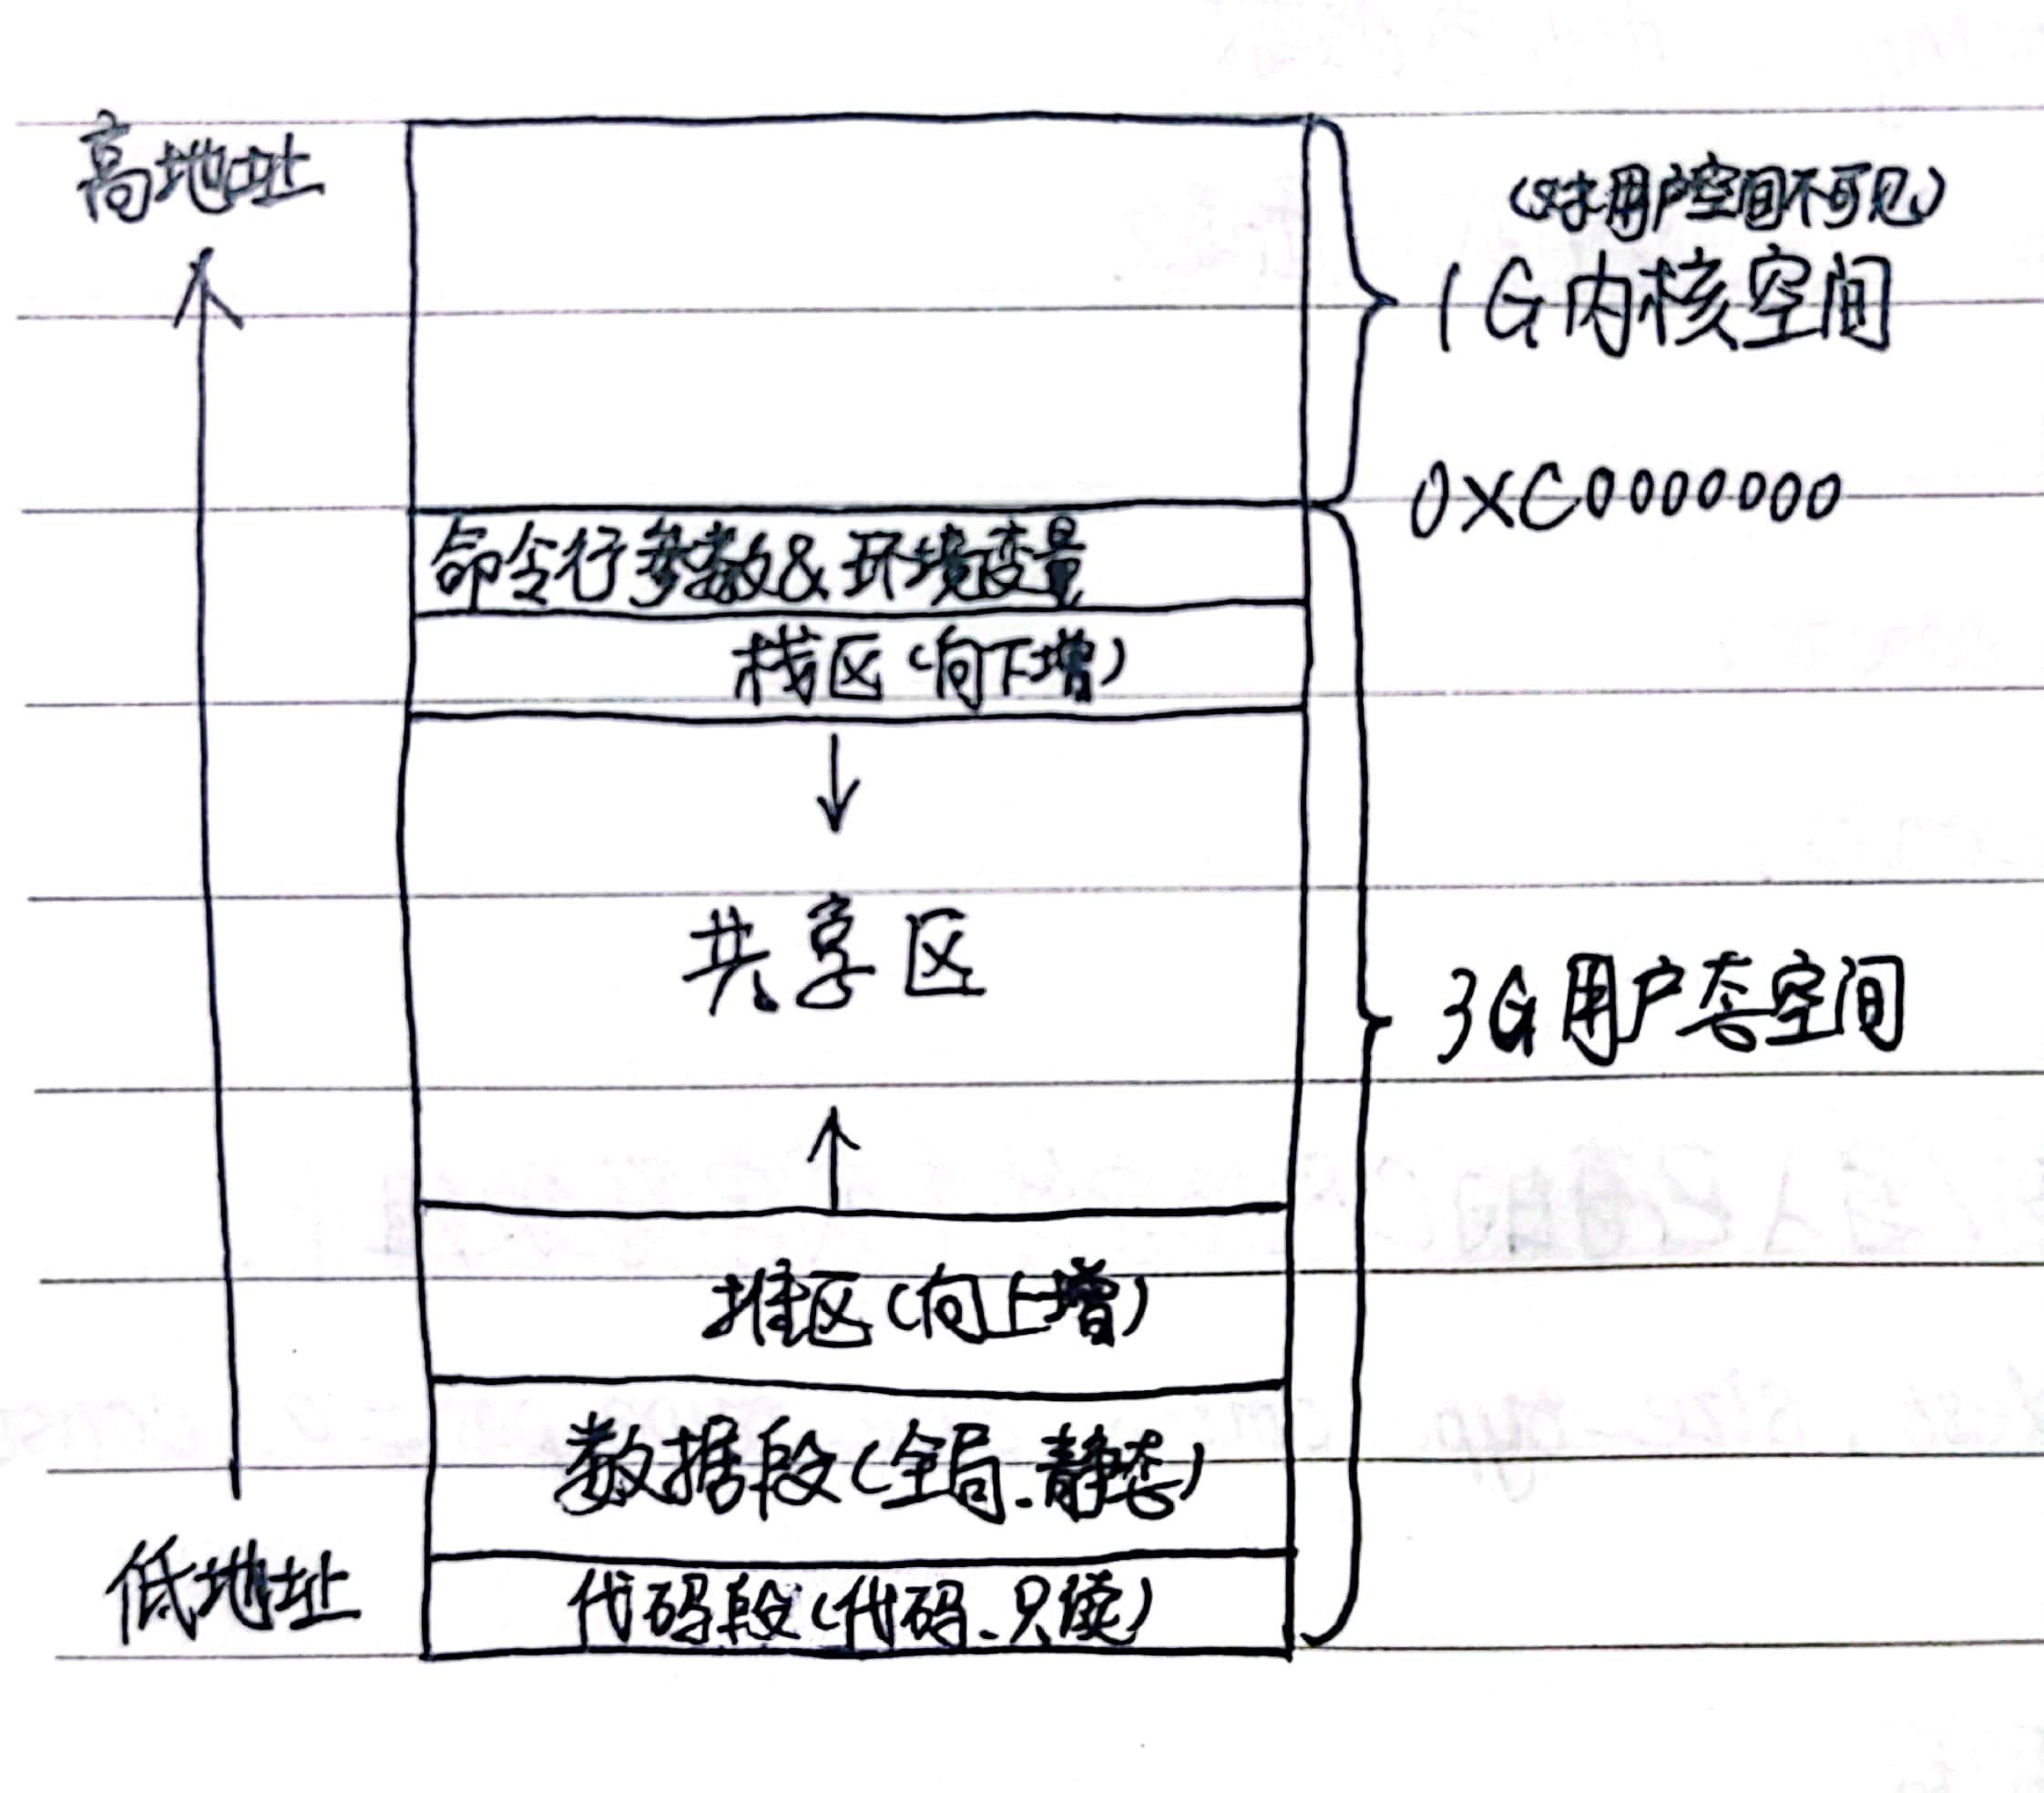 高地址
(对用户空间不可见)
1G内核空间
0XC0000000
命令行参数&环境变量
栈区(向下增)
共享区
3G用户态空间
堆区(向上增)
数据段(全局、静态)
低地址
代码段(代码、只读)